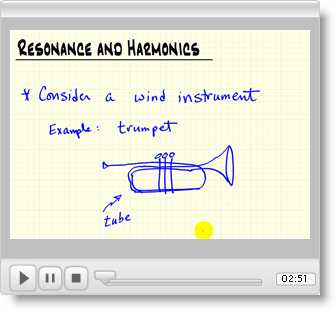 RESONANCE AND HARMONICS
* Consider a wind instrument
Example: trumpet
tube
02:51